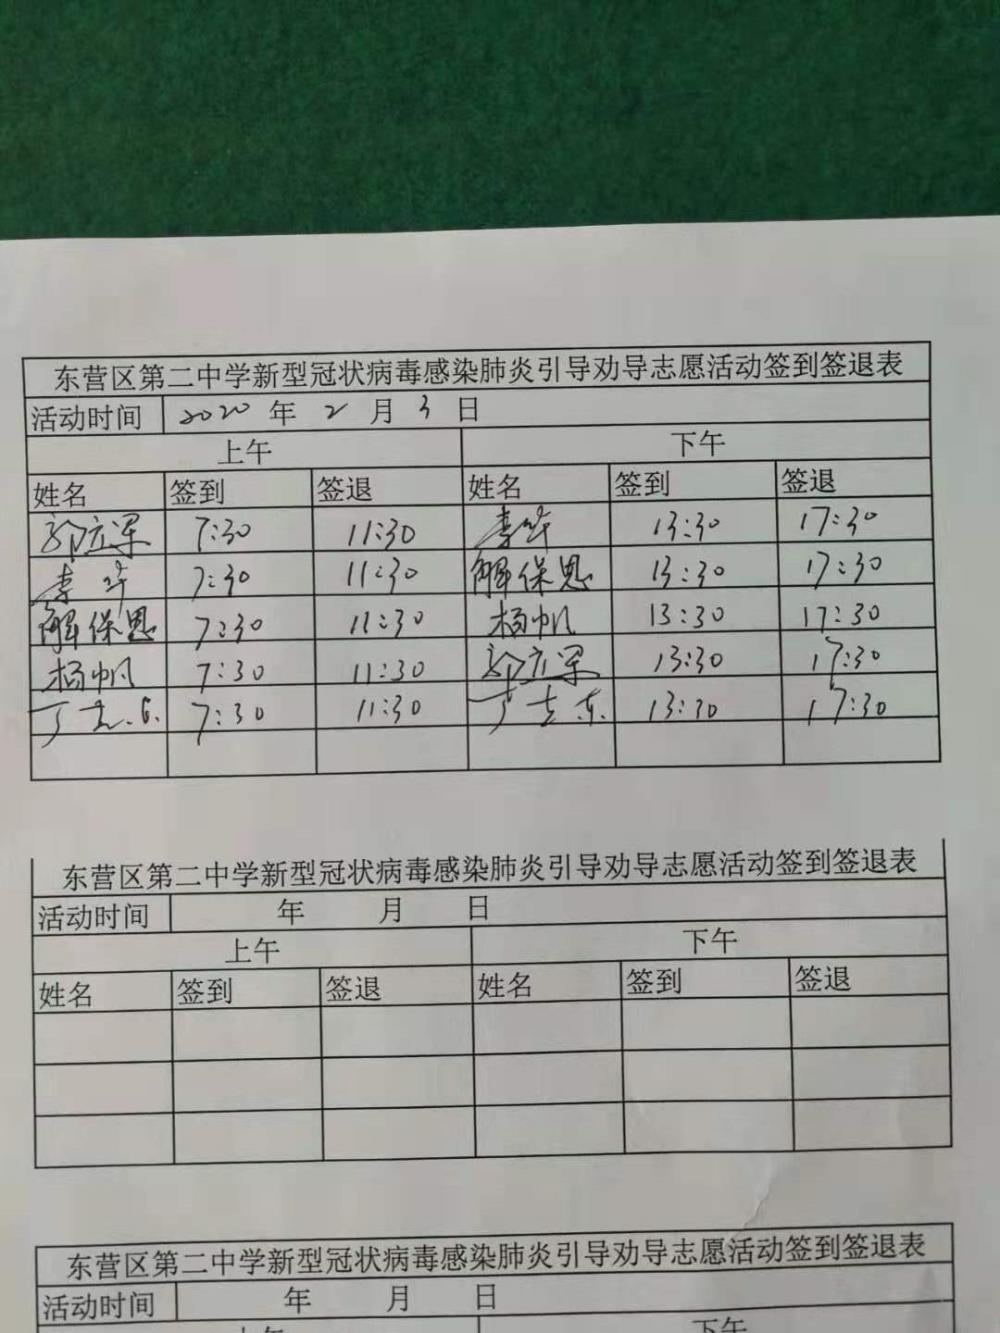 东营区第二中学新型冠状病毒感染肺炎引导劝导志愿活动签到签退表
活动时间 2020 年 2 月 3 日
上午 下午
姓名 签到 签退 姓名 签到 签退
郭立军 7:30 11:30 李华 13:30 17:30
李华 7:30 11:30 解保恩 13:30 17:30
解保恩 7:30 11:30 杨帆 13:30 17:30
杨帆 7:30 11:30 郭立军 13:30 17:30
7:30 11:30 13:30 17:30
东营区第二中学新型冠状病毒感染肺炎引导劝导志愿活动签到签退表
活动时间 年 月 日
上午 下午
姓名 签到 签退 姓名 签到 签退
东营区第二中学新型冠状病毒感染肺炎引导劝导志愿活动签到签退表
活动时间 年 月 日
上午 下午